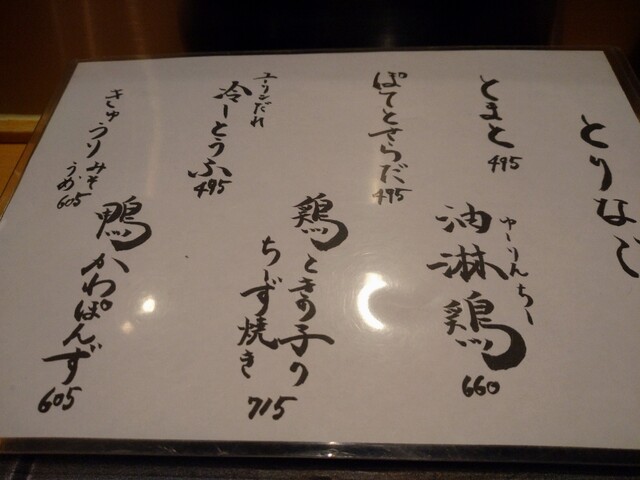 とりなご
とまと
495
ゆーりんちー
油淋鶏
660
ぽてとさらだ
495
鶏ときの子の
ちーず焼き
715
ユーリンだれ
冷ーとうふ
495
きゅうり
みそ
うめ
605
鴨かわぽんず
605